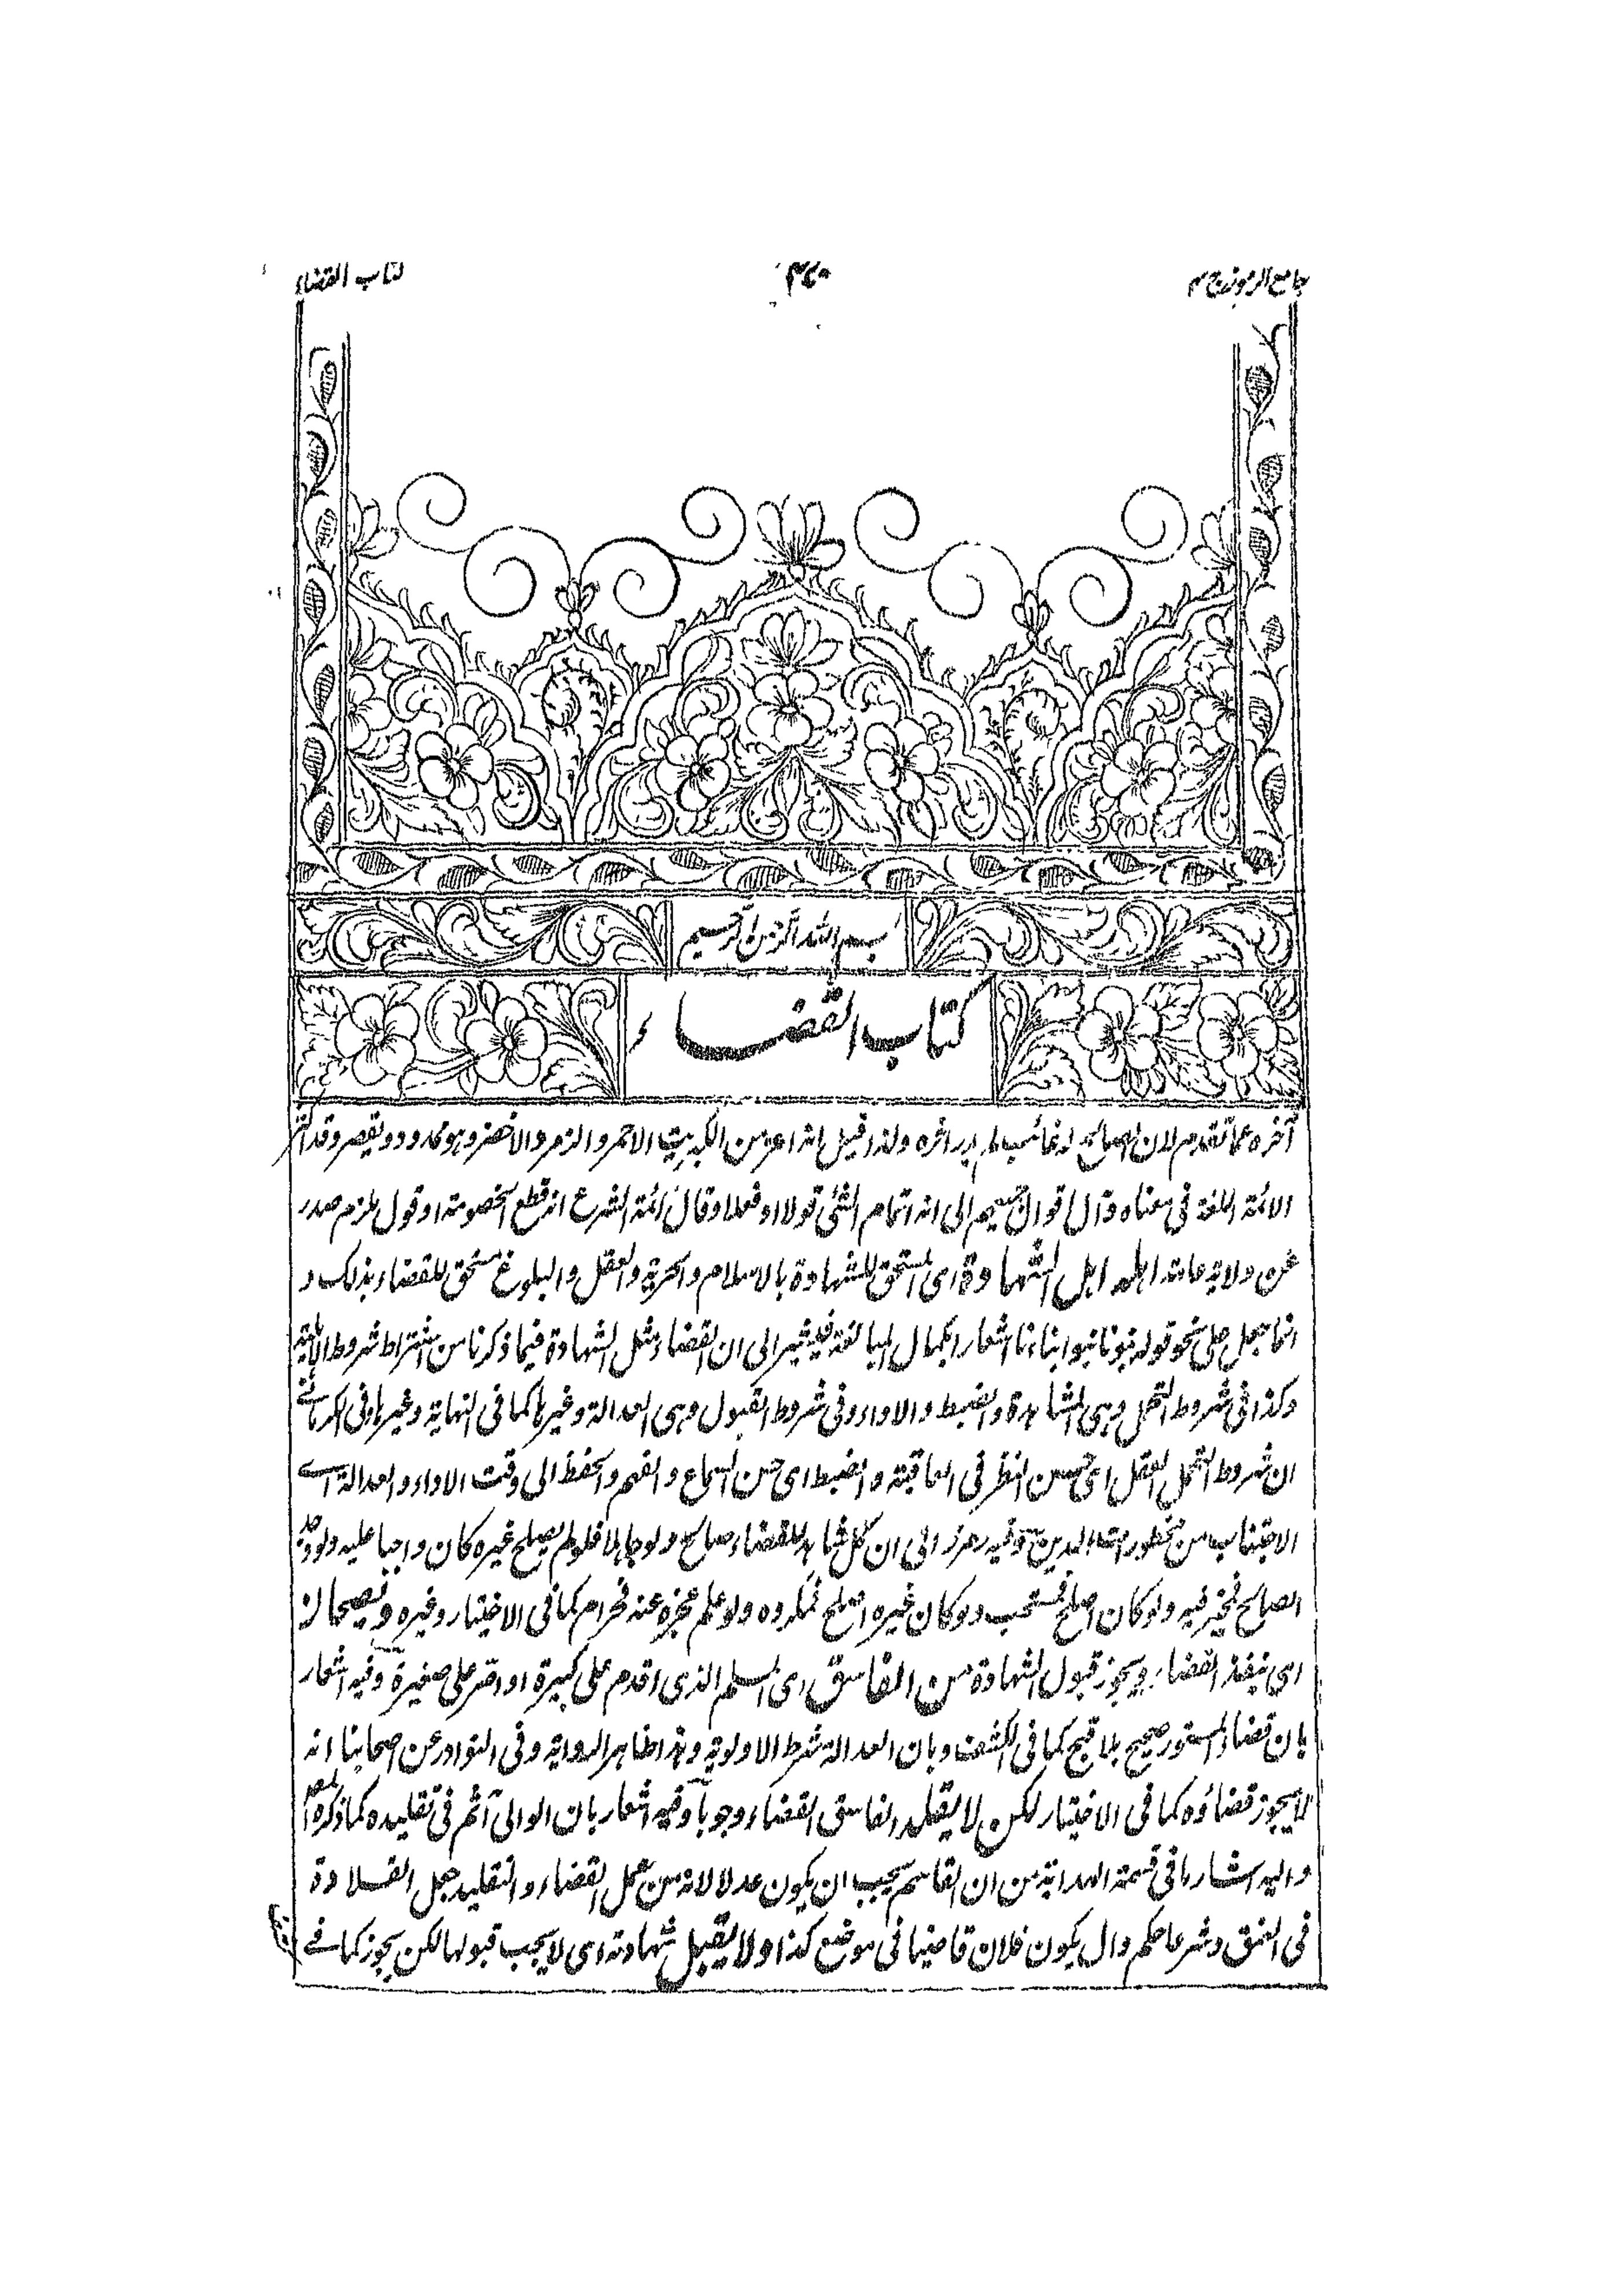 جامع الرموز ج ۲
کتاب القضاء
بسم الله الرحمن الرحیم
کتاب القضاء
آخره عما تقدم لان الصالح له غائب ولذا قیل انه اعز من الکبریت الاحمر والزمرد الاخضر وهو ممدود ویقصر وقد اکثر
الائمة اللغة فی معناه وآل اقوال جمیعهم الی انه اتمام الشئ قولا او فعلا وقال ائمة الشرع انه قطع الخصومة او قول ملزم صدر
عن ولایة عامة اهله اهل الشهادة ای المستحق للشهادة بالاسلام والحریة والعقل والبلوغ مستحق للقضاء بذلک و
انما جعل علی نحو قوله بنونا بنو ابنائنا اشعارا بکمال المبالغة فیشیر الی ان القضاء مثل الشهادة فیما ذکرنا من اشتراط شروط الاهلیة
وکذا فی شروط التحمل وهی المشاهدة والضبط والاداء وفی شروط القبول وهی العدالة وغیرها کما فی النهایة وغیرها وفی الکرمانی
ان شروط التحمل العقل ای حسن النظر فی العاقبة والضبط ای حسن السماع والفهم والحفظ الی وقت الاداء والعدالة ای
الاجتناب من محظورات الدین وفیه رمز الی ان کل شاهد للقضاء صالح ولو جاهلا فلو لم یصلح غیره کان واجبا علیه ولو وجد
الصالح فمخیر فیه ولو کان اصلح فمستحب ولو کان غیره اصلح فمکروه ولو علم عجزه عنه فحرام کما فی الاختیار وغیره ویصحان
ای ینفذ القضاء ویجوز قبول الشهادة من الفاسق ای المسلم الذی اقدم علی کبیرة او اصر علی صغیرة وفیه اشعار
بان قضاء المستور صحیح بلا قبح کما فی الکشف وبان العدالة شرط الاولویة وهذا ظاهر الروایة وفی النوادر عن اصحابنا انه
لا یجوز قضاؤه کما فی الاختیار لکن لا یقلد الفاسق القضاء وجوبا وفیه اشعار بان الوالی آثم فی تقلیده کما ذکره المصنف
والیه اشار ما فی قسمة الهدایة من ان القاسم یجب ان یکون عدلا لانه من عمل القضاء والتقلید جعل القلادة
فی العنق وشرعا حکم وال بکون فلان قاضیا فی موضع کذا ولا یقبل شهادته ای لا یجب قبولها لکن یجوز کما فی